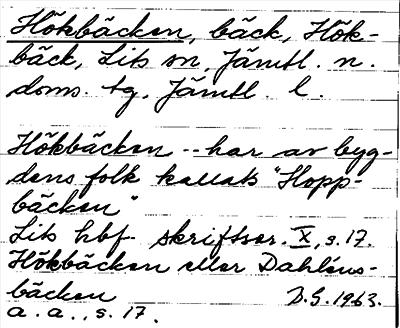 Hökbäcken, bäck, Hök-
bäck, Lits sn, Jämtl. n.
doms. tg, Jämtl. l.
Hökbäcken -- har av byg-
dens folk kallats "Hopp-
bäcken"
Lits hbf. skriftser. X, s. 17.
Hökbäcken eller Dahléns-
bäcken D.G. 1963.
a. a., s. 17.